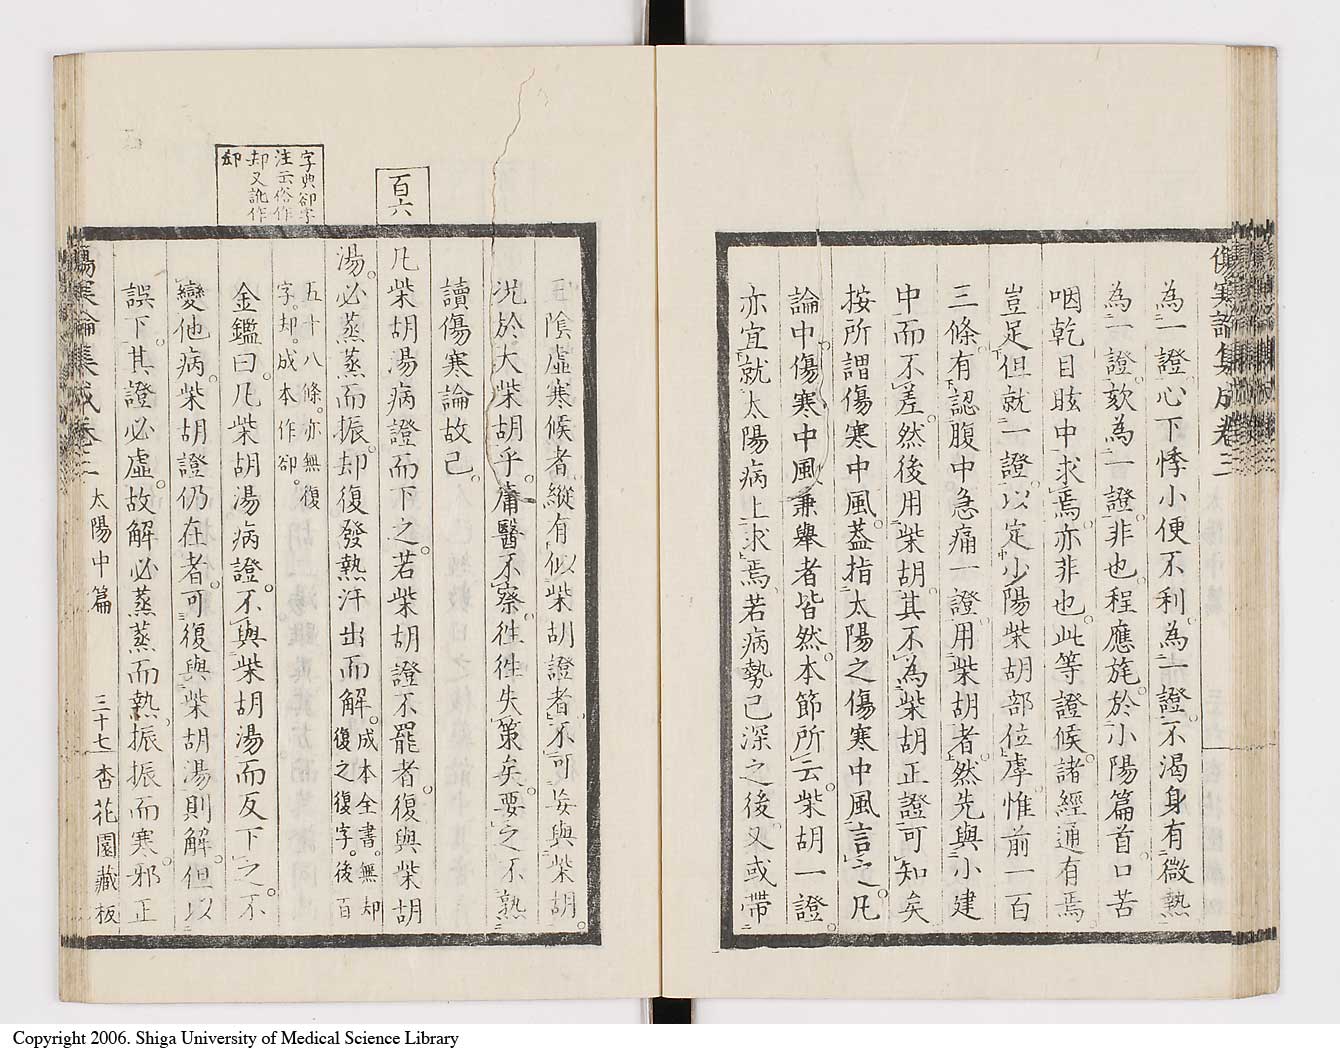 傷寒論集成卷三
為一證心下悸小便不利為一證不渴身有微熱
為一證欬為一證非也程應旄於小陽篇首口苦
咽乾目眩中求焉亦非也此等證候諸經通有焉
豈足但就一證以定少陽柴胡部位虖惟前一百
三條有認腹中急痛一證用柴胡者然先與小建
中而不差然後用柴胡其不為柴胡正證可知矣
按所謂傷寒中風葢指太陽之傷寒中風言之凡
論中傷寒中風兼舉者皆然本節所云柴胡一證
亦宜就太陽病上求焉若病勢已深之後又或帶
陰虛寒候者縱有似柴胡證者不可妄與柴胡
況於大柴胡乎庸醫不察徃徃失策矣要之不熟
讀傷寒論故已
百六
凡柴胡湯病證而下之若柴胡證不罷者復與柴胡
湯必蒸蒸而振却復發熱汗出而解成本全書無却
復之復字後百
五十八條亦無復
字却成本作卻
字典卻字
注云俗作
却又訛作
郤
金鑑曰凡柴胡湯病證不與柴胡湯而反下之不
變他病柴胡證仍在者可復與柴胡湯則解但以
誤下其證必虛故解必蒸蒸而熱振振而寒邪正
傷寒論集成卷三 太陽中篇 三十七 杏花園藏板
Copyright 2006. Shiga University of Medical Science Library